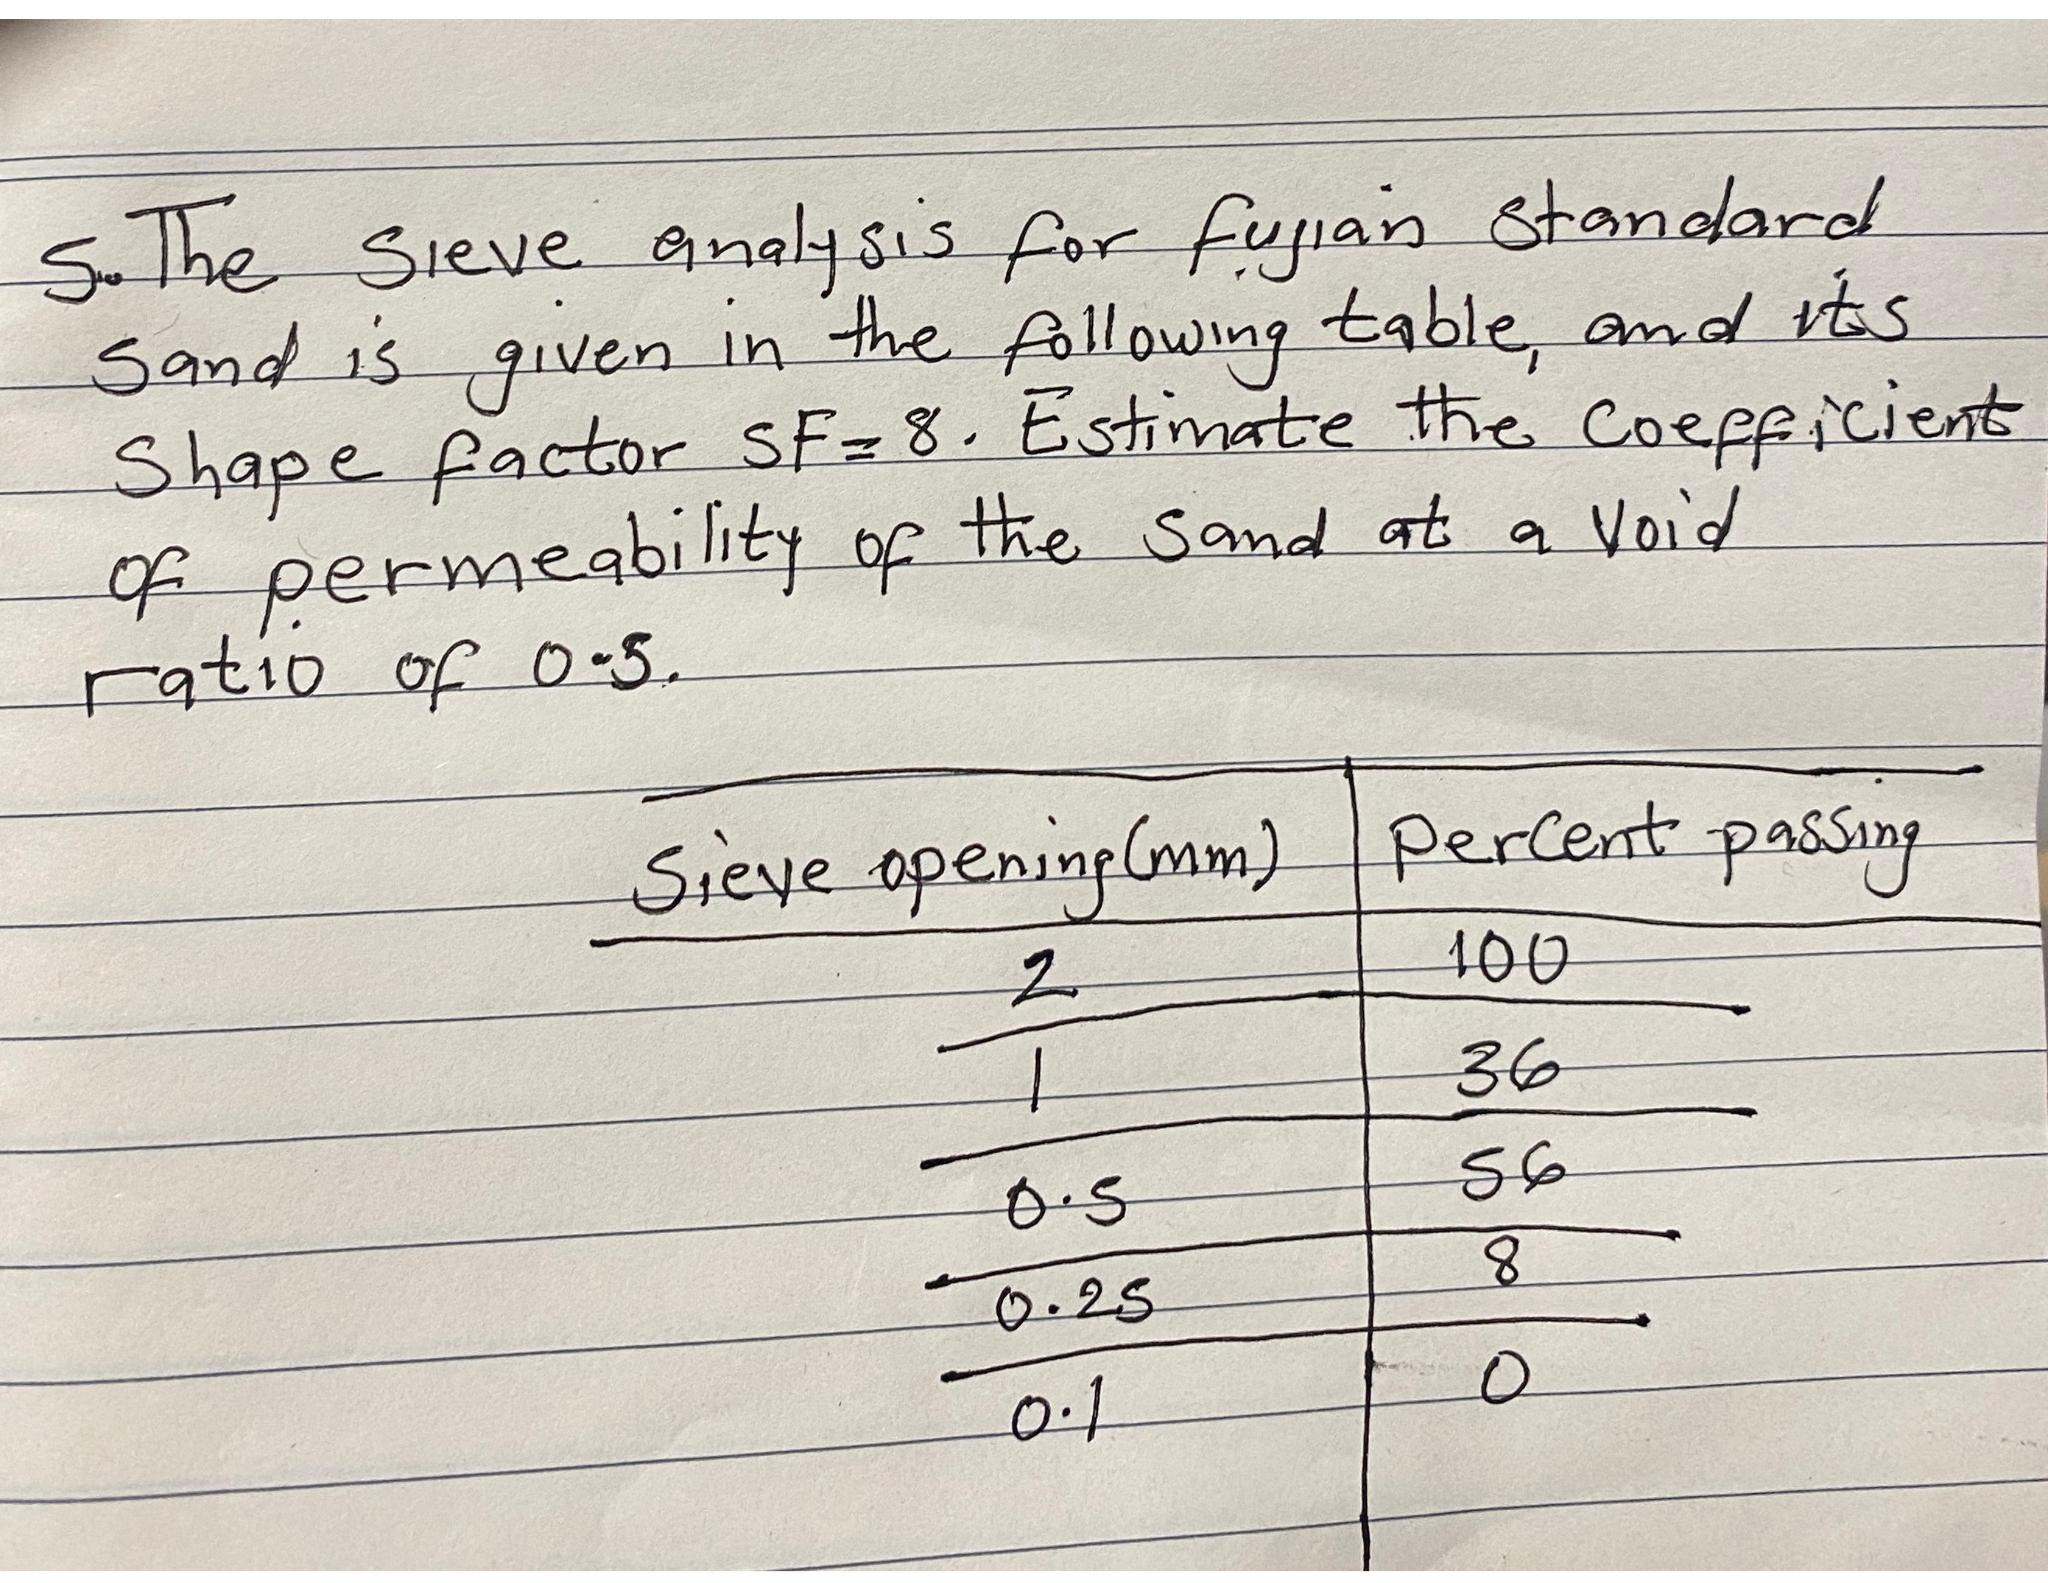 5. The sieve analysis for fujian standard
sand is given in the following table, and its
shape factor SF = 8. Estimate the coefficient
of permeability of the sand at a void
ratio of 0.5.
Sieve opening (mm) | Percent passing
2 | 100
1 | 36
0.5 | 56
0.25 | 8
0.1 | 0